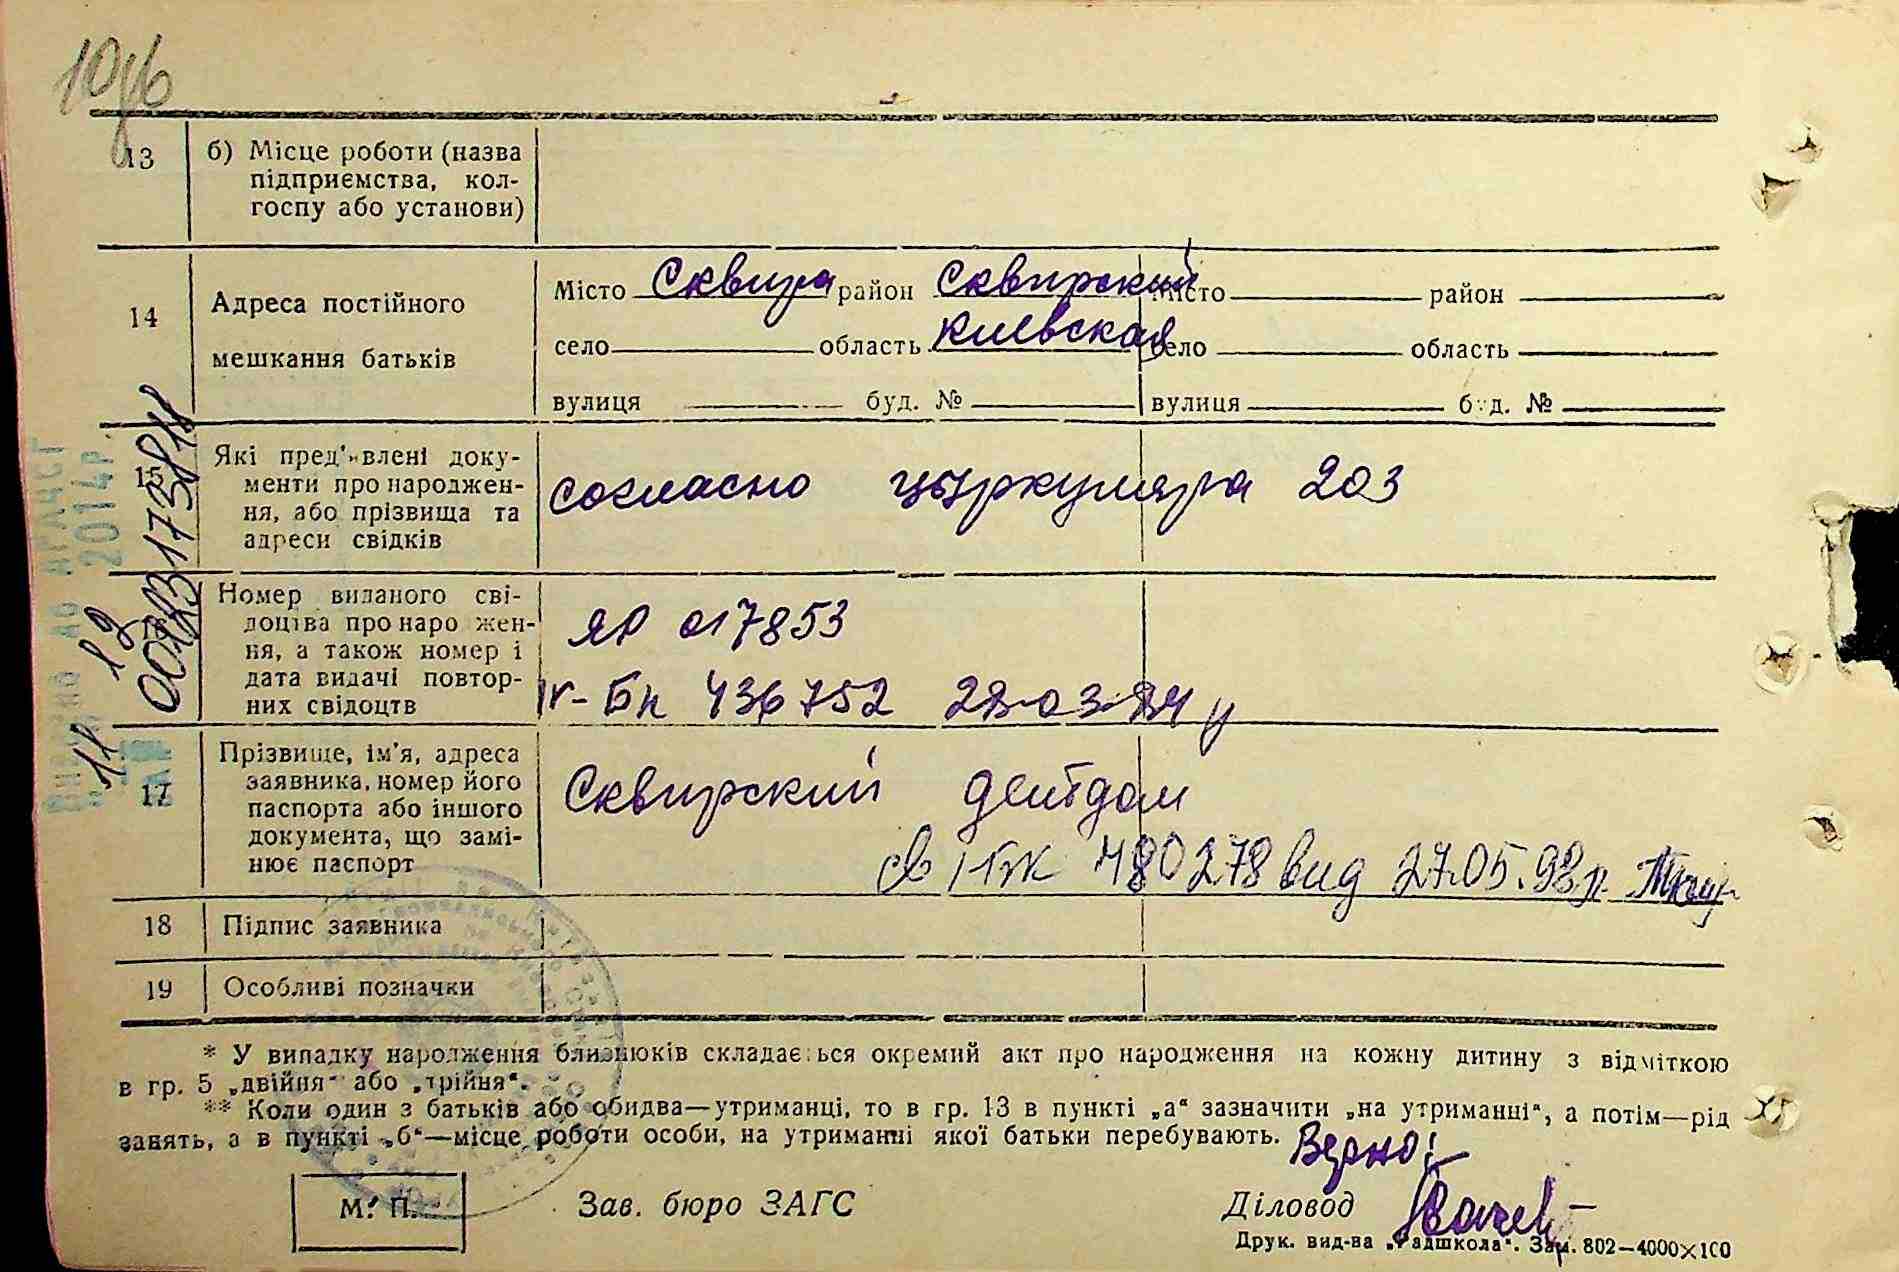 13 б) Місце роботи (назва
підприємства, кол-
госпу або установи)
14 Адреса постійного
мешкання батьків
Місто Сквира район Сквирский
село область Киевская
вулиця буд. №
місто район
село область
вулиця буд. №
15 Які пред'явлені доку-
менти про народжен-
ня, або прізвища та
адреси свідків
согласно циркуляра 203
Номер виданого сві-
доцтва про народжен-
ня, а також номер і
дата видачі повтор-
них свідоцтв
ЯР 017853
IV-БК 436752 28.03.84 г
17 Прізвище, ім'я, адреса
заявника, номер його
паспорта або іншого
документа, що замі-
нює паспорт
Сквирский детдом
св І-БК 480278 вид 27.05.98р.
18 Підпис заявника
19 Особливі позначки
* У випадку народження близнюків складається окремий акт про народження на кожну дитину з відміткою
в гр. 5 „двійня" або „трійня".
** Коли один з батьків або обидва—утриманці, то в гр. 13 в пункті „а" зазначити „на утриманні", а потім—рід
занять, а в пункті „б"—місце роботи особи, на утриманні якої батьки перебувають.
Верно:
М. П. Зав. бюро ЗАГС Діловод
Друк. вид-ва „Радшкола". Зам. 802—4000×100
2014р.
00183173818
11 12